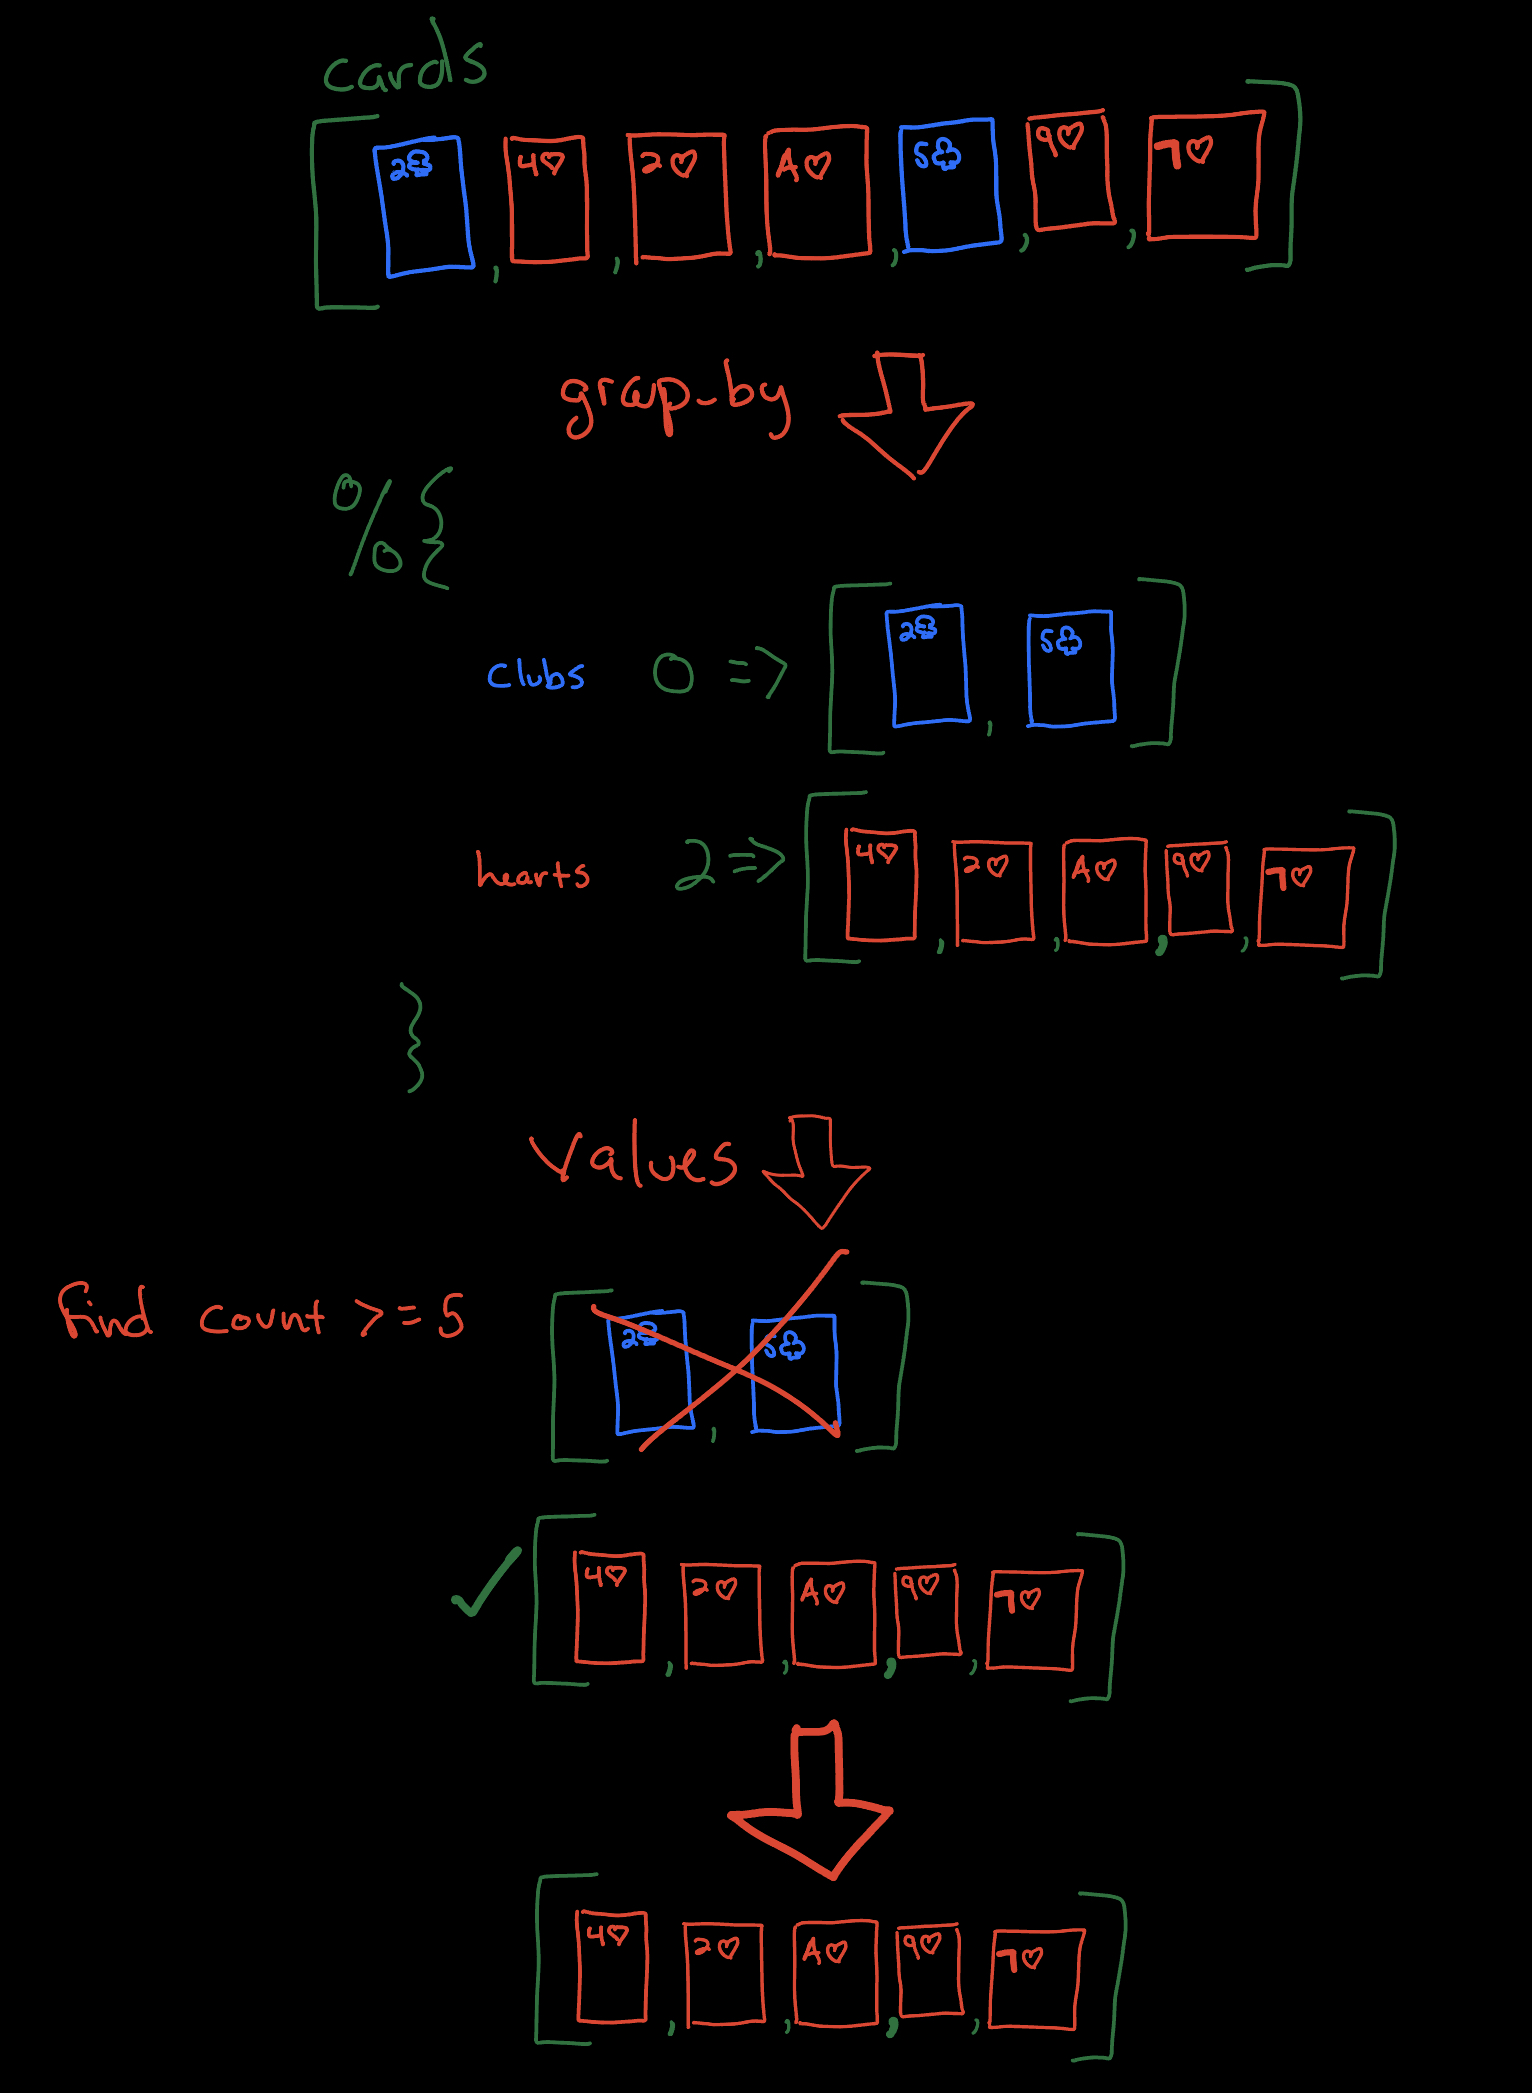 cards
[ 2♣, 4♡, 2♡, A♡, 5♣, 9♡, 7♡ ]
group_by
%{
clubs 0 => [ 2♣, 5♣ ]
hearts 2 => [ 4♡, 2♡, A♡, 9♡, 7♡ ]
}
values
find count >= 5 [ 2♣, 5♣ ]
✓ [ 4♡, 2♡, A♡, 9♡, 7♡ ]
[ 4♡, 2♡, A♡, 9♡, 7♡ ]